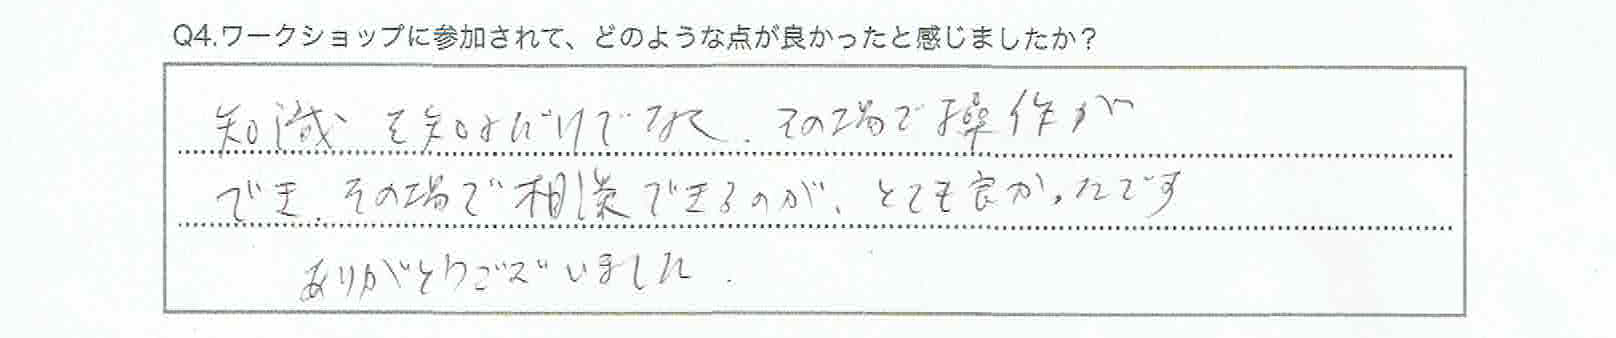 Q4.ワークショップに参加されて、どのような点が良かったと感じましたか？
知識を知るだけでなく、その場で操作が
でき、その場で相談できるのが、とても良かったです
ありがとうございました。